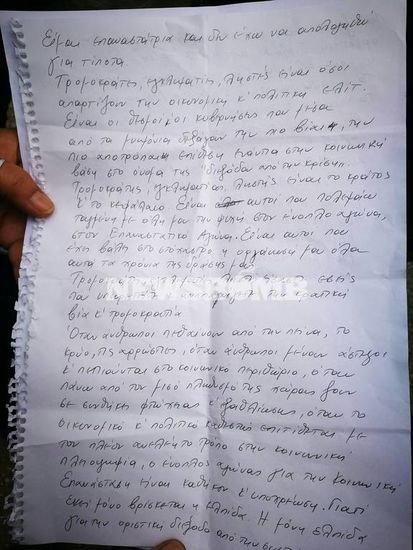 Είμαι επαναστάτρια και δεν έχω να απολογηθώ
για τίποτα.
Τρομοκράτες, εγκληματίες, ληστές είναι όσοι
απαρτίζουν την οικονομική κ' πολιτική ελίτ.
Είναι οι κυβερνήσεις που μέσα
από τα μνημόνια διεξάγουν την πιο βίαιη, την
πιο επίθεση ενάντια στην κοινωνική
βάση στο όνομα της "διεξόδου από την κρίση".
Τρομοκράτης, εγκληματίας, ληστής είναι το κράτος
κ' το κεφάλαιο. Είναι αυτοί που πολεμάω
ταγμένη με όλη μου την ψυχή στον ένοπλο αγώνα,
στον Επαναστατικό Αγώνα. Είναι αυτοί που
έχει βάλει στο στόχαστρο η οργάνωσή μου όλα
αυτά τα χρόνια της δράσης μας.
NEWSBOMB
που κρατική
βία κ' τρομοκρατία
Όταν άνθρωποι πεθαίνουν από την πείνα, το
κρύο, τις αρρώστιες, όταν άνθρωποι μένουν άστεγοι
κ' πετιούνται στο κοινωνικό περιθώριο, όταν
πάνω από τον μισό πληθυσμό της χώρας ζουν
σε συνθήκες φτώχειας κ' εξαθλίωσης, όταν το
οικονομικό κ' πολιτικό καθεστώς επιτίθεται με
τον πλέον ανελέητο τρόπο στην κοινωνική
πλειοψηφία, ο ένοπλος αγώνας για την Κοινωνική
Επανάσταση είναι καθήκον κ' υποχρέωση. Γιατί
εκεί μόνο βρίσκεται η ελπίδα. Η μόνη ελπίδα
για την οριστική διέξοδο από την